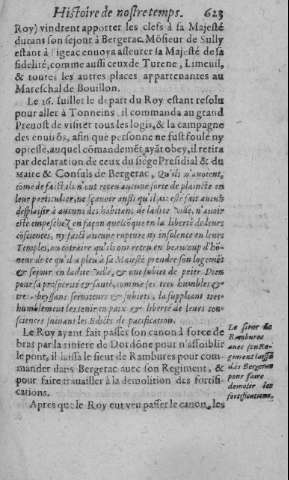 Histoire de nostre temps. 623
Roy) vindrent apporter les clefs à sa Majesté
durant son sejour à Bergerac. Mósieur de Sully
estant à Figeac enuoya asseurer sa Majesté de sa
fidelité, comme aussi ceux de Turene, Limeuil,
& toutes les autres places appartenantes au
Mareschal de Bouillon.
Le 16. Iuillet le depart du Roy estant resolu
pour aller à Tonneins, il commanda au grand
Preuost de visiter tous les logis, & la campagne
des enuirós, afin que personne ne fust foulé ny
opressé, auquel cómandemét ayāt obey, il retira
par declaration de ceux du siege Presidial & du
Maire & Consuls de Bergerac, Qu'ils n'auoient,
cóme de faict ils n'ont receu aucune sorte de plainéte en
leur particulier, ne sçauoir aussi qu'il ait esté fait aucũ
desplaisir à aucuns des habitans de ladite ville, n'auoir
esté empeschez en façon quelcõque en la liberté de leurs
cósciences, ny faict aucune ruyne ny insolence en leurs
Temples, au contraire qu'ils ont receu en beaucoup d'hó-
neur de ce qu'il a pleu à sa Maiesté prendre son logemét
& sejour en ladite ville, & que subiets de prier Dieu
pour sa prosperité & santé, comme ses tres-humbles &
tres-obeyssans seruiteurs & subiets, la supplians tres-
humblement les tenir en paix & liberté de leurs con-
sciences suiuant les Edicts de pacification.
Le Roy ayant fait passer son canon à force de
bras par la riuiere de Dordóne pour n'affoiblir
le pont, il laissa le sieur de Rambures pour com-
mander dans Bergerac auec son Regiment, &
pour faire trauailler à la demolition des fortifi-
cations.
Le sieur de
Rambures
auec son Re-
giment laissé
dās Bergerac
pour faire
demolir les
fortifications.
Apres que le Roy eut veu passer le canon, les